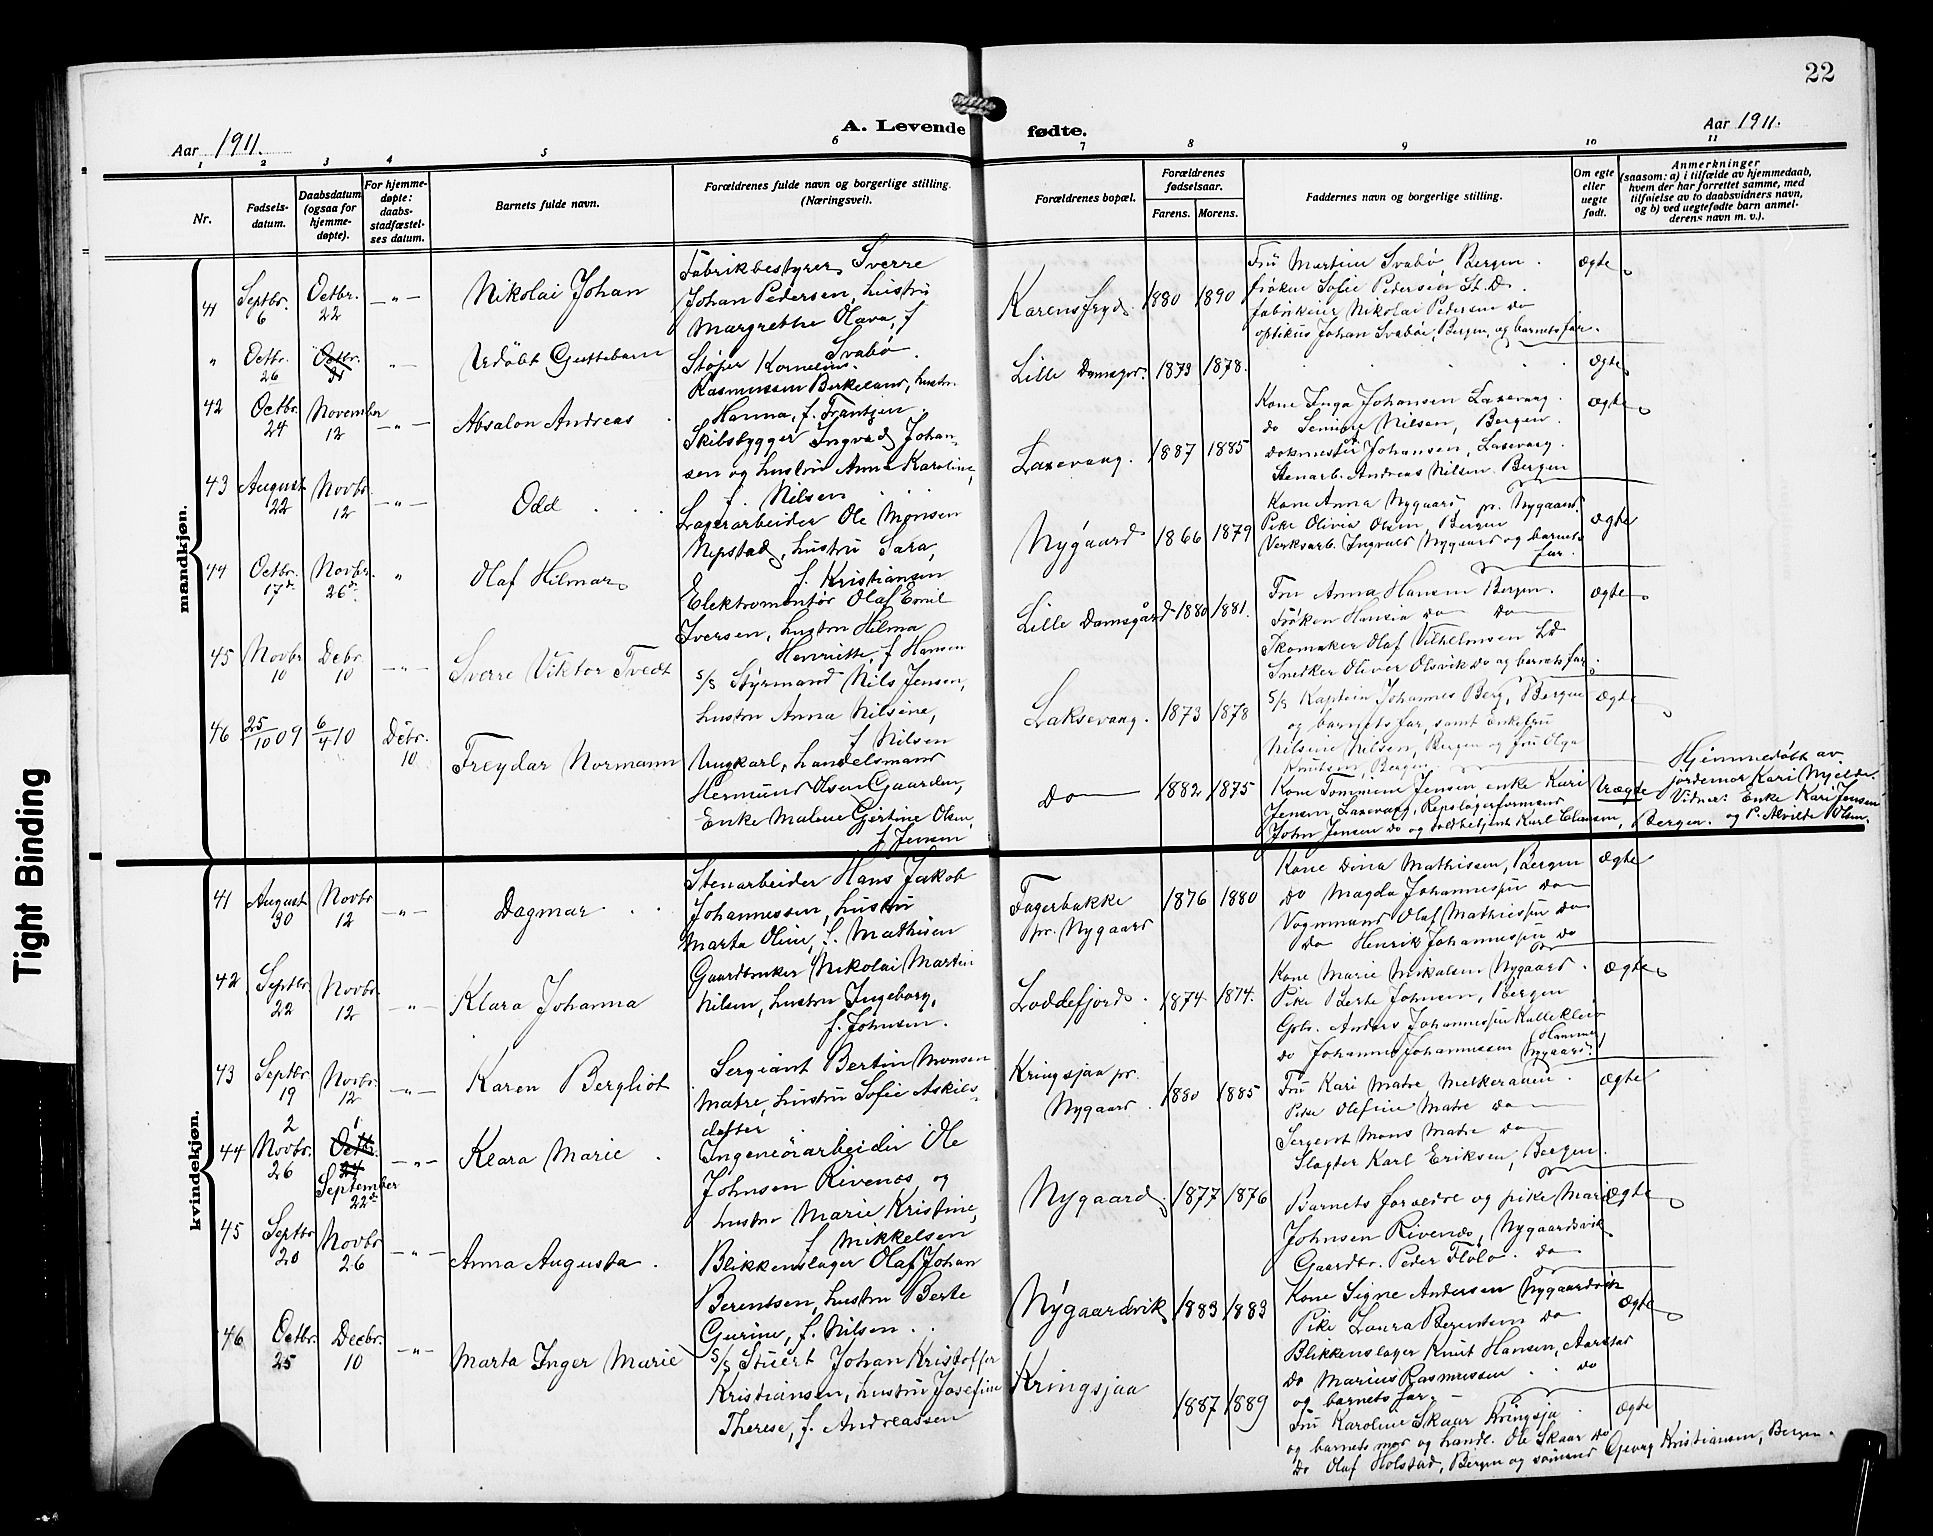 22
Aar 1911.
A. Levende fødte.
Aar 1911.
1 2 3 4 5 6 7 8 9 10 11
Nr.
Fødsels-
datum.
Daabsdatum
(ogsaa for
hjemme-
døpte).
For hjemme-
døpte:
daabs-
stadfæstel-
ses datum.
Barnets fulde navn.
Forældrenes fulde navn og borgerlige stilling.
(Næringsvei).
Forældrenes bopæl.
Forældrenes
fødselsaar.
Farens. Morens.
Faddernes navn og borgerlige stilling.
Om egte
eller
uegte
født.
Anmerkninger
(saasom: a) i tilfælde av hjemmedaab,
hvem der har forrettet samme, med
tilføielse av to daabsvidners navn,
og b) ved uegtefødte barn anmel-
derens navn m. v.).
mandkjøn.
41 Septbr. 6 Octbr. 22 Nikolai Johan
Fabrikbestyrer Sverre
Johan Pedersen, hustru
Margrethe Olava, f
Svabø
Karensfryd. 1880 1890
Fru Martine Svabø, Bergen.
frøken Sofie Pedersen St. D.
fabrikeier Nikolai Pedersen do
optikus Johan Svabøe, Bergen, og barnets far.
Ægte
" Octbr. 26 Octbr. 31 Udøbt Guttebarn
Støper Kornelius
Rasmussen Birkeland, hustru
Hanna, f. Frantzen
Lille Damsgrd. 1873 1878.
Ægte
42 Octbr. 24 November 12 Absalon Andreas
Skibsbygger Ingvald Johan-
sen og hustru Anna Karoline,
f. Nilsen
Laxevaag. 1887 1885
Kone Inga Johansen Laxevaag.
do Semine Nilsen, Bergen.
dokmester Johansen, Laxevaag.
Stenarb. Andreas Nilsen. Bergen
Ægte
43 August 22 Novbr. 12 Odd
Lagerarbeider Ole Monsen
Nepstad, hustru Sara,
f. Kristiansen
Nygaard 1866 1879
Kone Anna Nygaard, pr. Nygaard.
Pike Olivia Olsen, Bergen
Verksarb. Ingvald Nygaard og barnets
far.
Ægte
44 Octbr. 17de Novbr. 26de Olaf Hilmar
Elektromontør Olaf Emil
Iversen, hustru Hilma
Henriette, f Hansen
Lille Damsgård 1880 1881.
Fru Anna Hansen Bergen.
Frøken Hansia do do
Skomaker Olaf Vilhelmsen LD
Snedker Oliver Olsvik do og barnets far.
Ægte
45 Novbr 10 Debr. 10 Sverre Viktor Tvedt
S/s Styrmand Nils Jensen,
hustru Anna Nilsine,
f Nilsen
Laksevaag. 1873 1878
S/s Kaptein Johannes Berg, Bergen
og barnets far, samt Enkefru
Nilsine Nilsen, Bergen og fru Olga
Knutsen, Bergen.
Ægte
46 25/10 09 6/4 10 Debr. 10 Freydar Normann
Ungkarl, handelsmand
Hermund Olsen Gaarden,
Enke Malene Gjertine Olsen,
f Jensen
do 1882 1875
Kone Tommine Jensen, enke Kari
Jensen, Laxevaag, Repslagerformand
John Jensen do og toldbetjent Karl Clausen, Bergen.
Uægte
Hjemmedøbt av
jordemor Kari Mjelde.
Vidner: Enke Kari Jensen
og P. Alvilde Olsen.
kvindekjøn.
41 August 30 Novbr 12 Dagmar
Stenarbeider Hans Jakob
Johannessen, hustru
Marta Oline, f. Mathisen
Fagerbakke
pr. Nygaard
1876 1880
Kone Dina Mathissen, Bergen
do Magda Johannessen do
Vognmand Olaf Mathiesen do
do Henrik Johannessen do
Ægte
42 Septbr. 22 Novbr. 12 Klara Johanna
Gaardbruker Nikolai Martin
Nilsen, hustru Ingeborg,
f. Johnsen.
Loddefjord. 1874 1874.
Kone Marie Mikalsen Nygaard.
Pike Berte Johnsen, Bergen
Gbr. Anders Johannessen Kalleklev
do Johannes Johannessen
Nygaard.
Ægte
43 Septbr. 19 Novbr. 12 Karen Bergliot
Sergiant Bertin Monsen
Matre, hustru Sofie Askils-
datter
Kringsjaa pr.
Nygaard.
1880 1885
Fru Kari Matre
Pike Olefine Matre do
Sergent Mons Matre do
Slagter Karl Eriksen, Bergen.
Ægte
44 2 Novbr. 26 1 Octbr. 24 September 22de Klara Marie
Ingeniörarbeider Ole
Johnsen Rivenes, og
hustru Marie Kristine,
f Mikkelsen
Nygaard. 1877 1876
Barnets foreldre og pike Marie
Johnsen Rivenes, Nygaardsvik
Gaardbr. Peder Flølo. do
Ægte
45 Septbr. 20 Novbr 26 Anna Augusta.
Blikkenslager Olaf Johan
Berentsen, hustru Berte
Gurine, f. Nilsen.
Nygaardvik 1883 1883
Kone Signe Andersen Nygaardsvik
Pike Laura Berentsen do
Blikkenslager Knut Hansen, Aarstad
do Marius Rasmussen do
og barnets far.
Ægte
46 Octbr. 25 Decbr. 10 Marta Inger Marie
S/s Stuert Johan Kristoffer
Kristiansen, hustru Josefine
Therese, f. Andreassen
Kringsjaa 1887 1889
Fru Karoline Skaar Kringsjå
og barnets mor og handl. Ole Skaar do
do Olaf Holstad, Bergen og sømand Georg Kristiansen, Bergen.
Ægte
Tight Binding